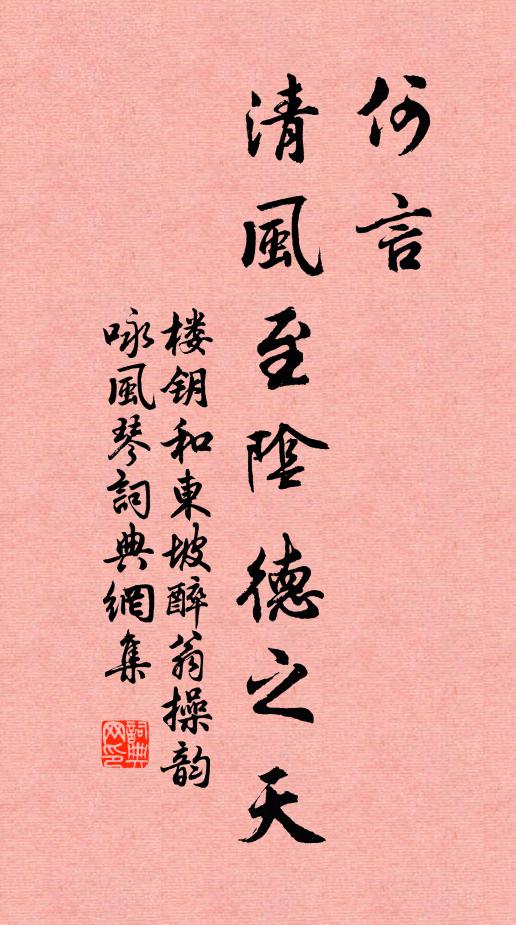 何言
清風至陰德之天
楼钥和東坡醉翁操韵
咏風琴詞典網集
詞典
网印